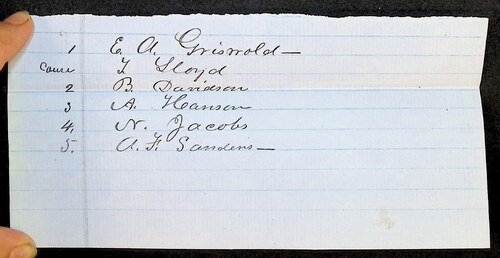 1 E. A. Griswold —
Came T Lloyd
2 B. Davidson
3 A. Hanson
4. N. Jacobs
5. A. F. Sanders —